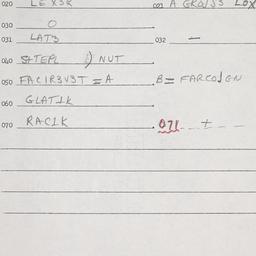 020 LEXSR 021 A GRO/SS LOX
030 O
031 LAT3 032 —
040 SHTEPL i) NUT
050 FACIR3V3T = A B = FARCOJGN
060 GLATIK
070 RACIK 071 ±